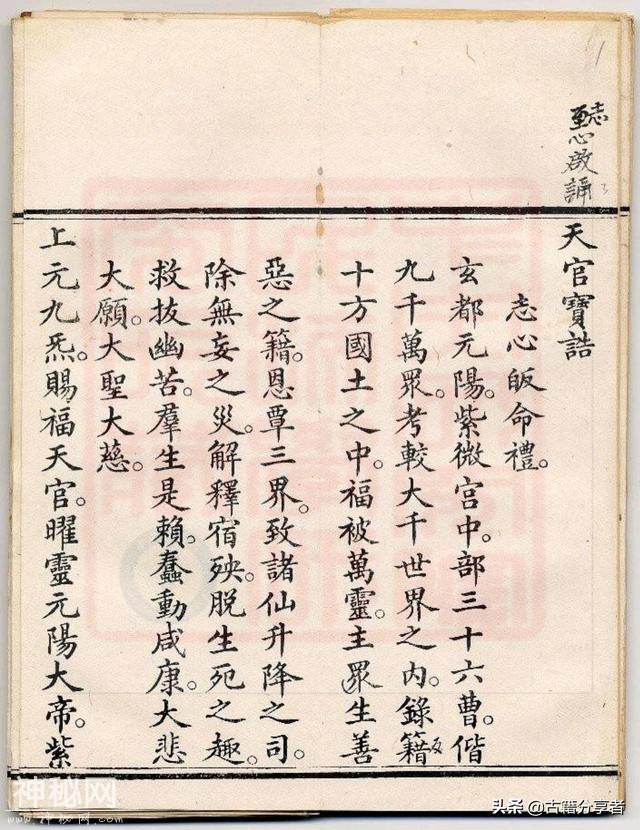 志
至心啟誦
天官寶誥
志心皈命禮。
玄都元陽。紫微宮中。部三十六曹。偕
九千萬眾。考較大千世界之內。錄籍
十方國土之中。福被萬靈。主眾生善
惡之籍。恩覃三界。致諸仙升降之司。
除無妄之災。解釋宿殃。脫生死之趣。
救拔幽苦。羣生是賴。蠢動咸康。大悲
大願。大聖大慈。
上元九炁。賜福天官。曜靈元陽大帝。紫
神秘网
www.神秘网.com
头条 @古籍分享者